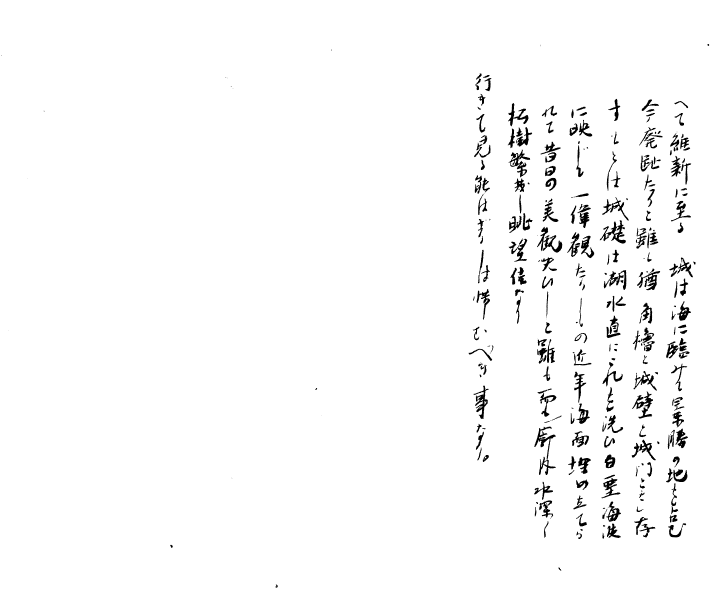 へて維新に至る 城は海に臨みて景勝の地を占む
今廃趾たりと雖も猶 角櫓と城壁と城門とを存
す もとは城礎は湖水直にこれを洗ひ白堊海波
に映じて一偉観たりしもの近年海面埋め立てら
れて昔日の美観失ひしと雖も 内水深く
松樹繁茂し眺望佳なり
行きて見る能はざりしは惜しむべき事なり。